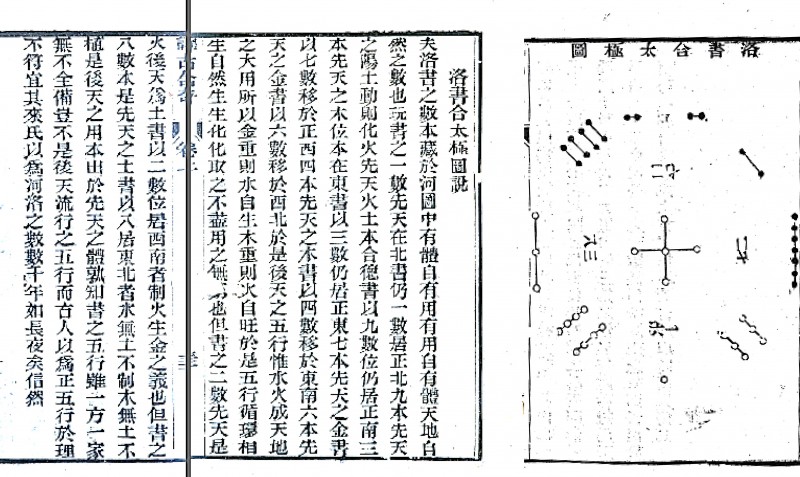 洛書合太極圖
洛書合太極圖說
夫洛書之數本藏於河圖中有體自有用有用自有體天地自
然之數也玩書之一數先天在北書仍一數居正北九本先天
之陽土動則化火先天火土本合德書以九數位仍居正南三
本先天之木位本在東書以三數仍居正東七本先天之金書
以七數移於正西四本先天之木書以四數移於東南六本先
天之金書以六數移於西北於是後天之五行惟水火成天地
之大用所以金重則水自生木重則火自旺於是五行循環相
生自然生生化化取之不盡用之無也但書之二數先天是
火後天爲土書以二數位居西南者制火生金之義也但書之
八數本是先天之土書以八居東北者水無土不制木無土不
植是後天之用本出於先天之體孰知書之五行雖一方一家
無不全備豈不是後天流行之五行而古人以爲正五行於理
不符宜其來氏以爲河洛之數數千年如長夜矣信然